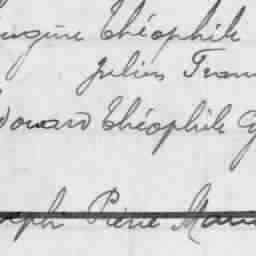 Eugène Théophile
Julien Fran
Edouard Théophile
Joseph Pierre Marie